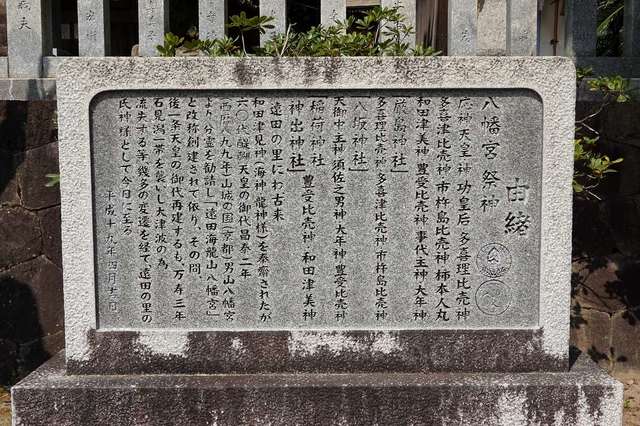 由緒
八幡宮 祭神
応神天皇 神功皇后 多喜理比売神
多喜津比売神 市杵島比売神 柿本人丸
和田津美神 豊受比売神 事代主神 大年神
「厳島神社」
多喜理比売神 多喜津比売神 市杵島比売神
「八坂神社」
天御中主神 須佐之男神 大年神 豊受比売神
「稲荷神社」 豊受比売神 和田津美神
「神出神社」
遠田の里にわ古来
和田津見神(海神龍神様)を奉齋されたが
六〇代醍醐天皇の御代昌泰二年
(西暦八九九年)山城の国(京都)男山八幡宮
より分霊を勧請し「遠田海龍山八幡宮」
と改称創建されて依り、その間、
後一条天皇の御代再建するも、万寿三年
石見潟一帯を襲いし大津波の為、
流失する等幾多の変遷を経て、遠田の里の
氏神様として今日に至る
平成十九年四月十二日